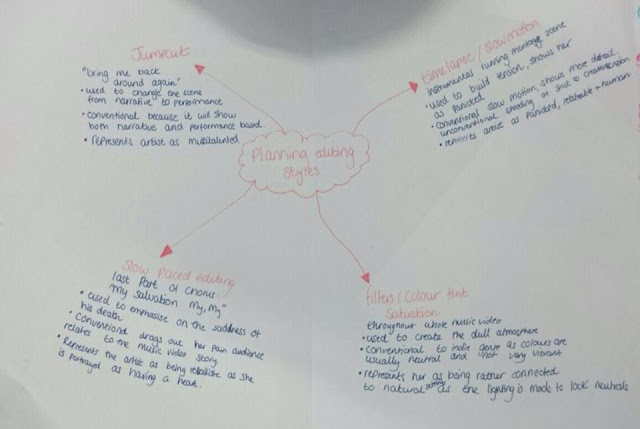 Jumpcut
"bring me back
around again"
• used to change the scene
from narrative to performance
• conventional because it will show
both narrative and performance based
• represents artist as multitalented
timelapse / slowmotion
instrumental running montage scene
• used to build tension, shows her
as panicked
• conventional slow motion, shows more detail.
unconventional speeding of shot to create tension
• represents artist as panicked, relatable + human
Planning editing
styles
Slow paced editing
last part of chorus
"my salvation my, my"
• used to emphasise on the saddness of
his death
• Conventional drags out her pain audience
relates to the music video story
• Represents the artist as being realistic as she
is portrayed as having a heart.
filters / Colour tint
Satuation
throughout whole music video
• used to create the dull atmosphere
• conventional to indie genre as colours are
usually neutral and not very vibrant
• represents her as being rather connected
to natural as the lighting is made to look neutrals